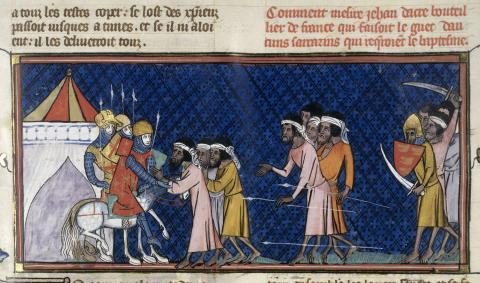 a touz les testes coper: se lost des xp̄iens
passoit iusques a tunes. et se il ni aloi
ent: il les deliveroit touz.
Comment mesire jehan dacre bouteil
lier de france qui faisoit le guet dau
cuns sarrazins qui reqroiēt le baptesme.